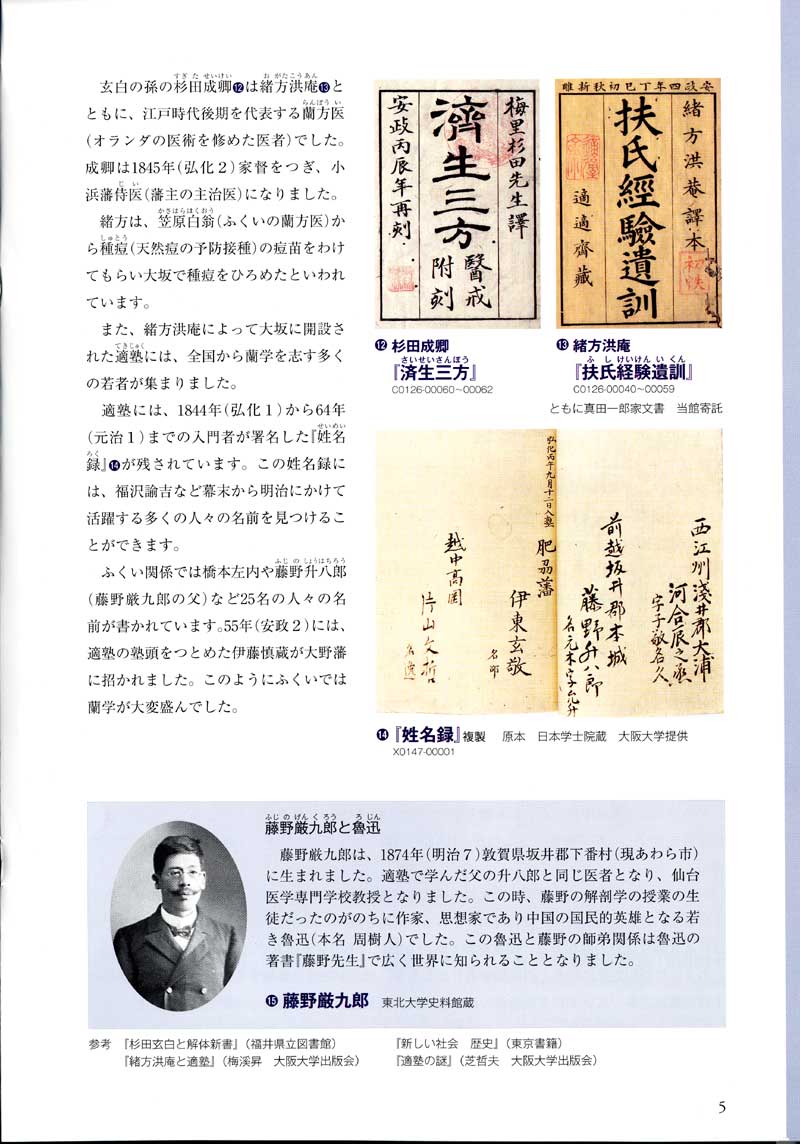 玄白の孫の杉田成卿⑫は緒方洪庵⑬と
ともに、江戸時代後期を代表する蘭方医
(オランダの医術を修めた医者)でした。
成卿は1845年(弘化２)家督をつぎ、小
浜藩侍医(藩主の主治医)になりました。
緒方は、笠原白翁(ふくいの蘭方医)か
ら種痘(天然痘の予防接種)の痘苗をわけ
てもらい大坂で種痘をひろめたといわれ
ています。
また、緒方洪庵によって大坂に開設さ
れた適塾には、全国から蘭学を志す多く
の若者が集まりました。
適塾には、1844年(弘化１)から64年
(元治１)までの入門者が署名した『姓名
録』⑭が残されています。この姓名録に
は、福沢諭吉など幕末から明治にかけて
活躍する多くの人々の名前を見つけるこ
とができます。
ふくい関係では橋本左内や藤野升八郎
(藤野厳九郎の父)など25名の人々の名
前が書かれています。55年(安政２)には、
適塾の塾頭をつとめた伊藤慎蔵が大野藩
に招かれました。このようにふくいでは
蘭学が大変盛んでした。
梅里杉田先生譯
濟生三方
醫戒
附刻
安政丙辰年再刻
安政四年丁巳初秋新雕
緒方洪菴譯本
扶氏經驗遺訓
適適齋藏
⑫ 杉田成卿
『済生三方』
C0126-00060～00062
⑬ 緒方洪庵
『扶氏経験遺訓』
C0126-00040～00059
ともに真田一郎家文書　当館寄託
西江州淺井郡大浦
河合辰之丞
前越坂井郡本城
藤野升八郎
弘化丙午九月十二日入塾
肥前藩
伊東玄敬
越中高岡
片山文哲
⑭『姓名録』複製　原本　日本学士院蔵　大阪大学提供
X0147-00001
藤野厳九郎と魯迅
藤野厳九郎は、1874年(明治７)敦賀県坂井郡下番村(現あわら市)
に生まれました。適塾で学んだ父の升八郎と同じ医者となり、仙台
医学専門学校教授となりました。この時、藤野の解剖学の授業の生
徒だったのがのちに作家、思想家であり中国の国民的英雄となる若
き魯迅(本名 周樹人)でした。この魯迅と藤野の師弟関係は魯迅の
著書『藤野先生』で広く世界に知られることとなりました。
⑮ 藤野厳九郎　東北大学史料館蔵
参考　『杉田玄白と解体新書』(福井県立図書館)　　『新しい社会　歴史』(東京書籍)
『緒方洪庵と適塾』(梅溪昇　大阪大学出版会)　　『適塾の謎』(芝哲夫　大阪大学出版会)
5